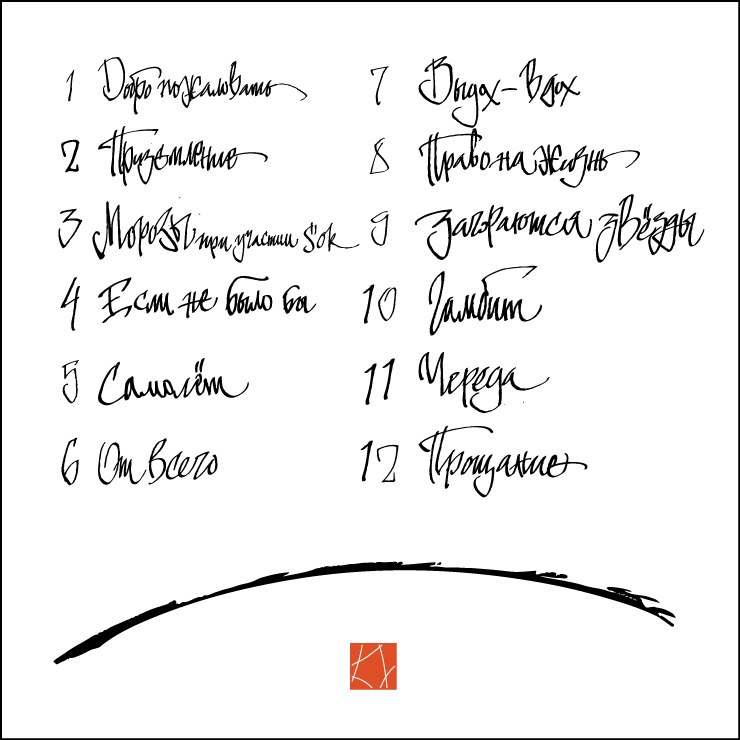 1 Добро пожаловать
2 Приземление
3 Морозы при участии S'ok
4 Если не было бы
5 Самолёт
6 От Всего
7 Выдох-Вдох
8 Право на жизнь
9 Заиграются звёзды
10 Гамбит
11 Череда
12 Прощание